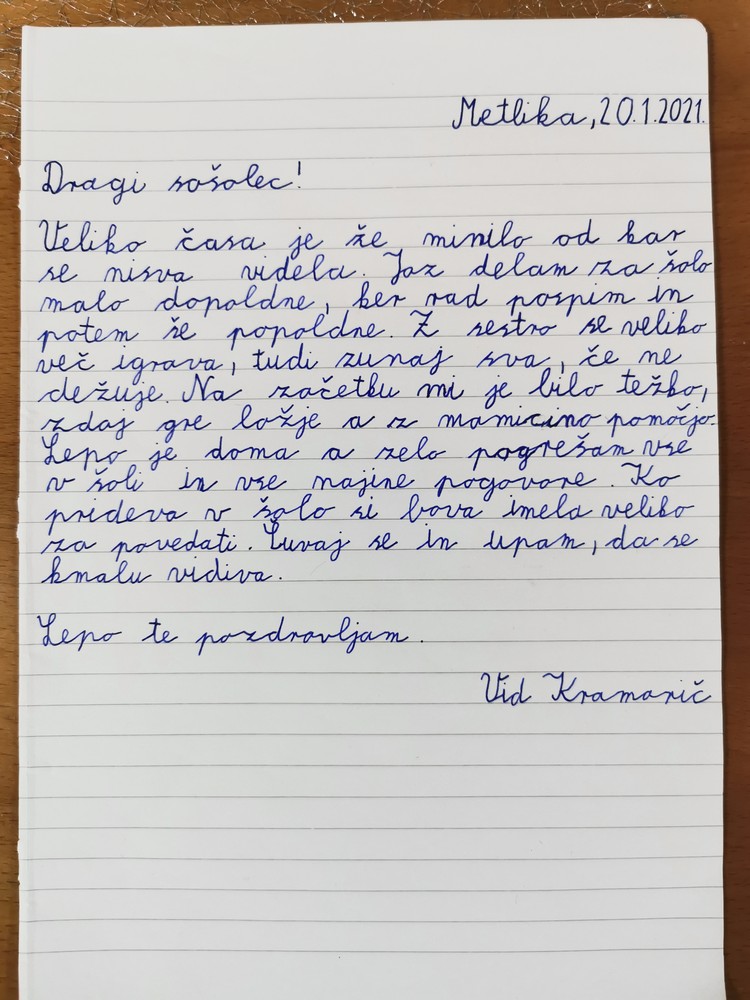 Metlika, 20.1.2021.
Dragi sošolec!
Veliko časa je že minilo od kar
se nisva videla. Jaz delam za šolo
malo dopoldne, ker rad pospim in
potem še popoldne. Z sestro se veliko
več igrava, tudi zunaj sva, če ne
dežuje. Na začetku mi je bilo težko,
zdaj gre ložje a z mamicino pomočjo.
Lepo je doma a zelo pogrešam vse
v šoli in vse najine pogovore. Ko
prideva v šolo si bova imela veliko
za povedati. Čuvaj se in upam, da se
kmalu vidiva.
Lepo te pozdravljam.
Vid Kramarič